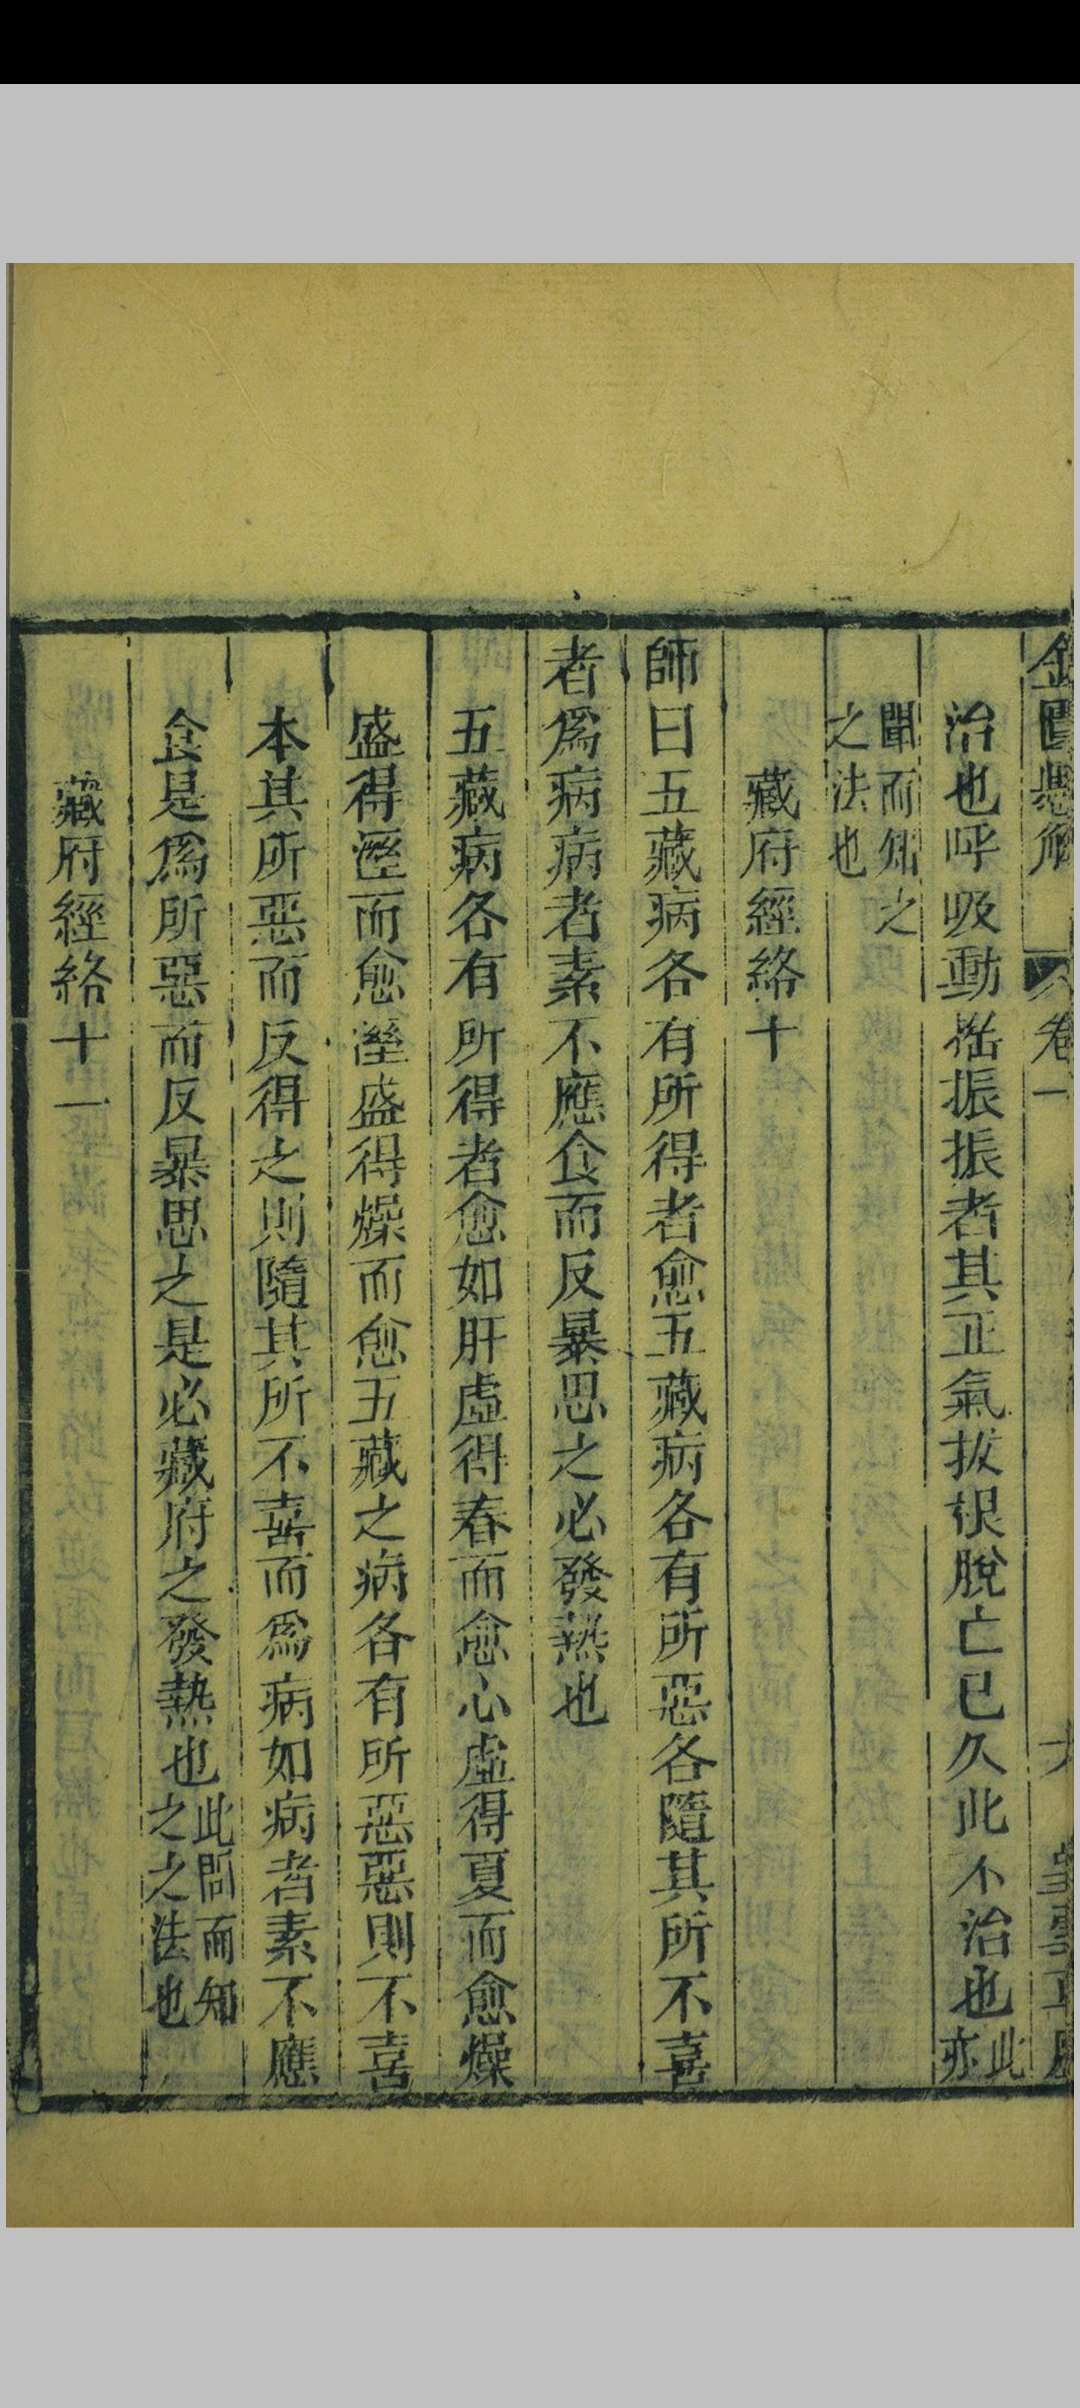 金匱懸解 卷一
治也呼吸動搖振振者其正氣拔根脫亡已久此不治也此亦
聞而知之之法也
藏府經絡十
師曰五藏病各有所得者愈五藏病各有所惡各隨其所不喜
者爲病病者素不應食而反暴思之必發熱也
五藏病各有所得者愈如肝虛得春而愈心虛得夏而愈燥
盛得溼而愈溼盛得燥而愈五藏之病各有所惡惡則不喜
本其所惡而反得之則隨其所不喜而爲病如病者素不應
食是爲所惡而反暴思之是必藏府之發熱也此問而知之之法也
藏府經絡十一